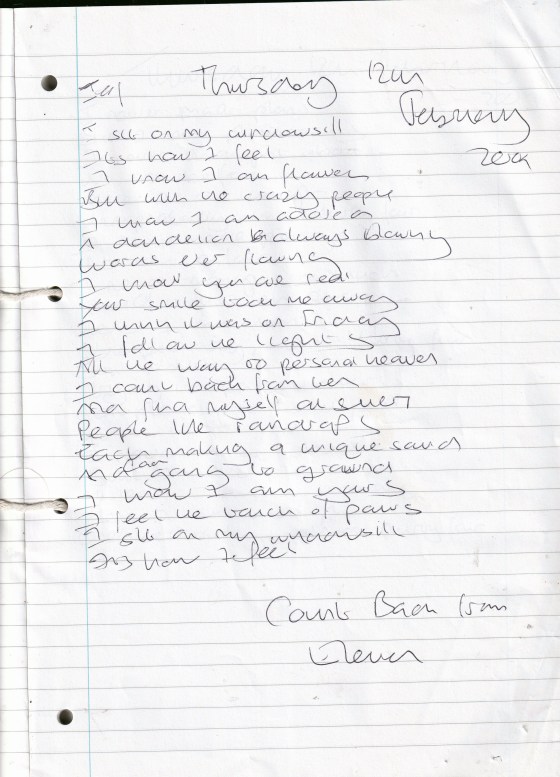 Thursday 12th
February
I sit on my windowsill
Its how I feel
I know I am flower
But with the crazy people
I know I am
A dandelion always blowing
words ever flowing
I know you are red
Your smile took me away
I think it was on Friday
I follow the lights
All the way to personal heaven
I count back from ten
And find myself at seven
People like raindrops
Each making a unique sound
And all going to ground
I know I am yours
I feel the touch of paws
I sit on my windowsill
Its how I feel
Count Back from
Eleven